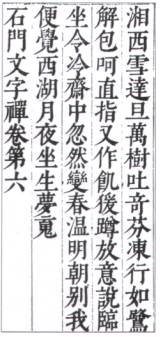 湘西雪達旦萬樹吐竒芬凍行如鷺
解包呵直指又作飢後蹲放意說臨
坐令冷齋中忽然變春温明朝别我
便覺西湖月夜坐生夢䰟
石門文字禪卷第六